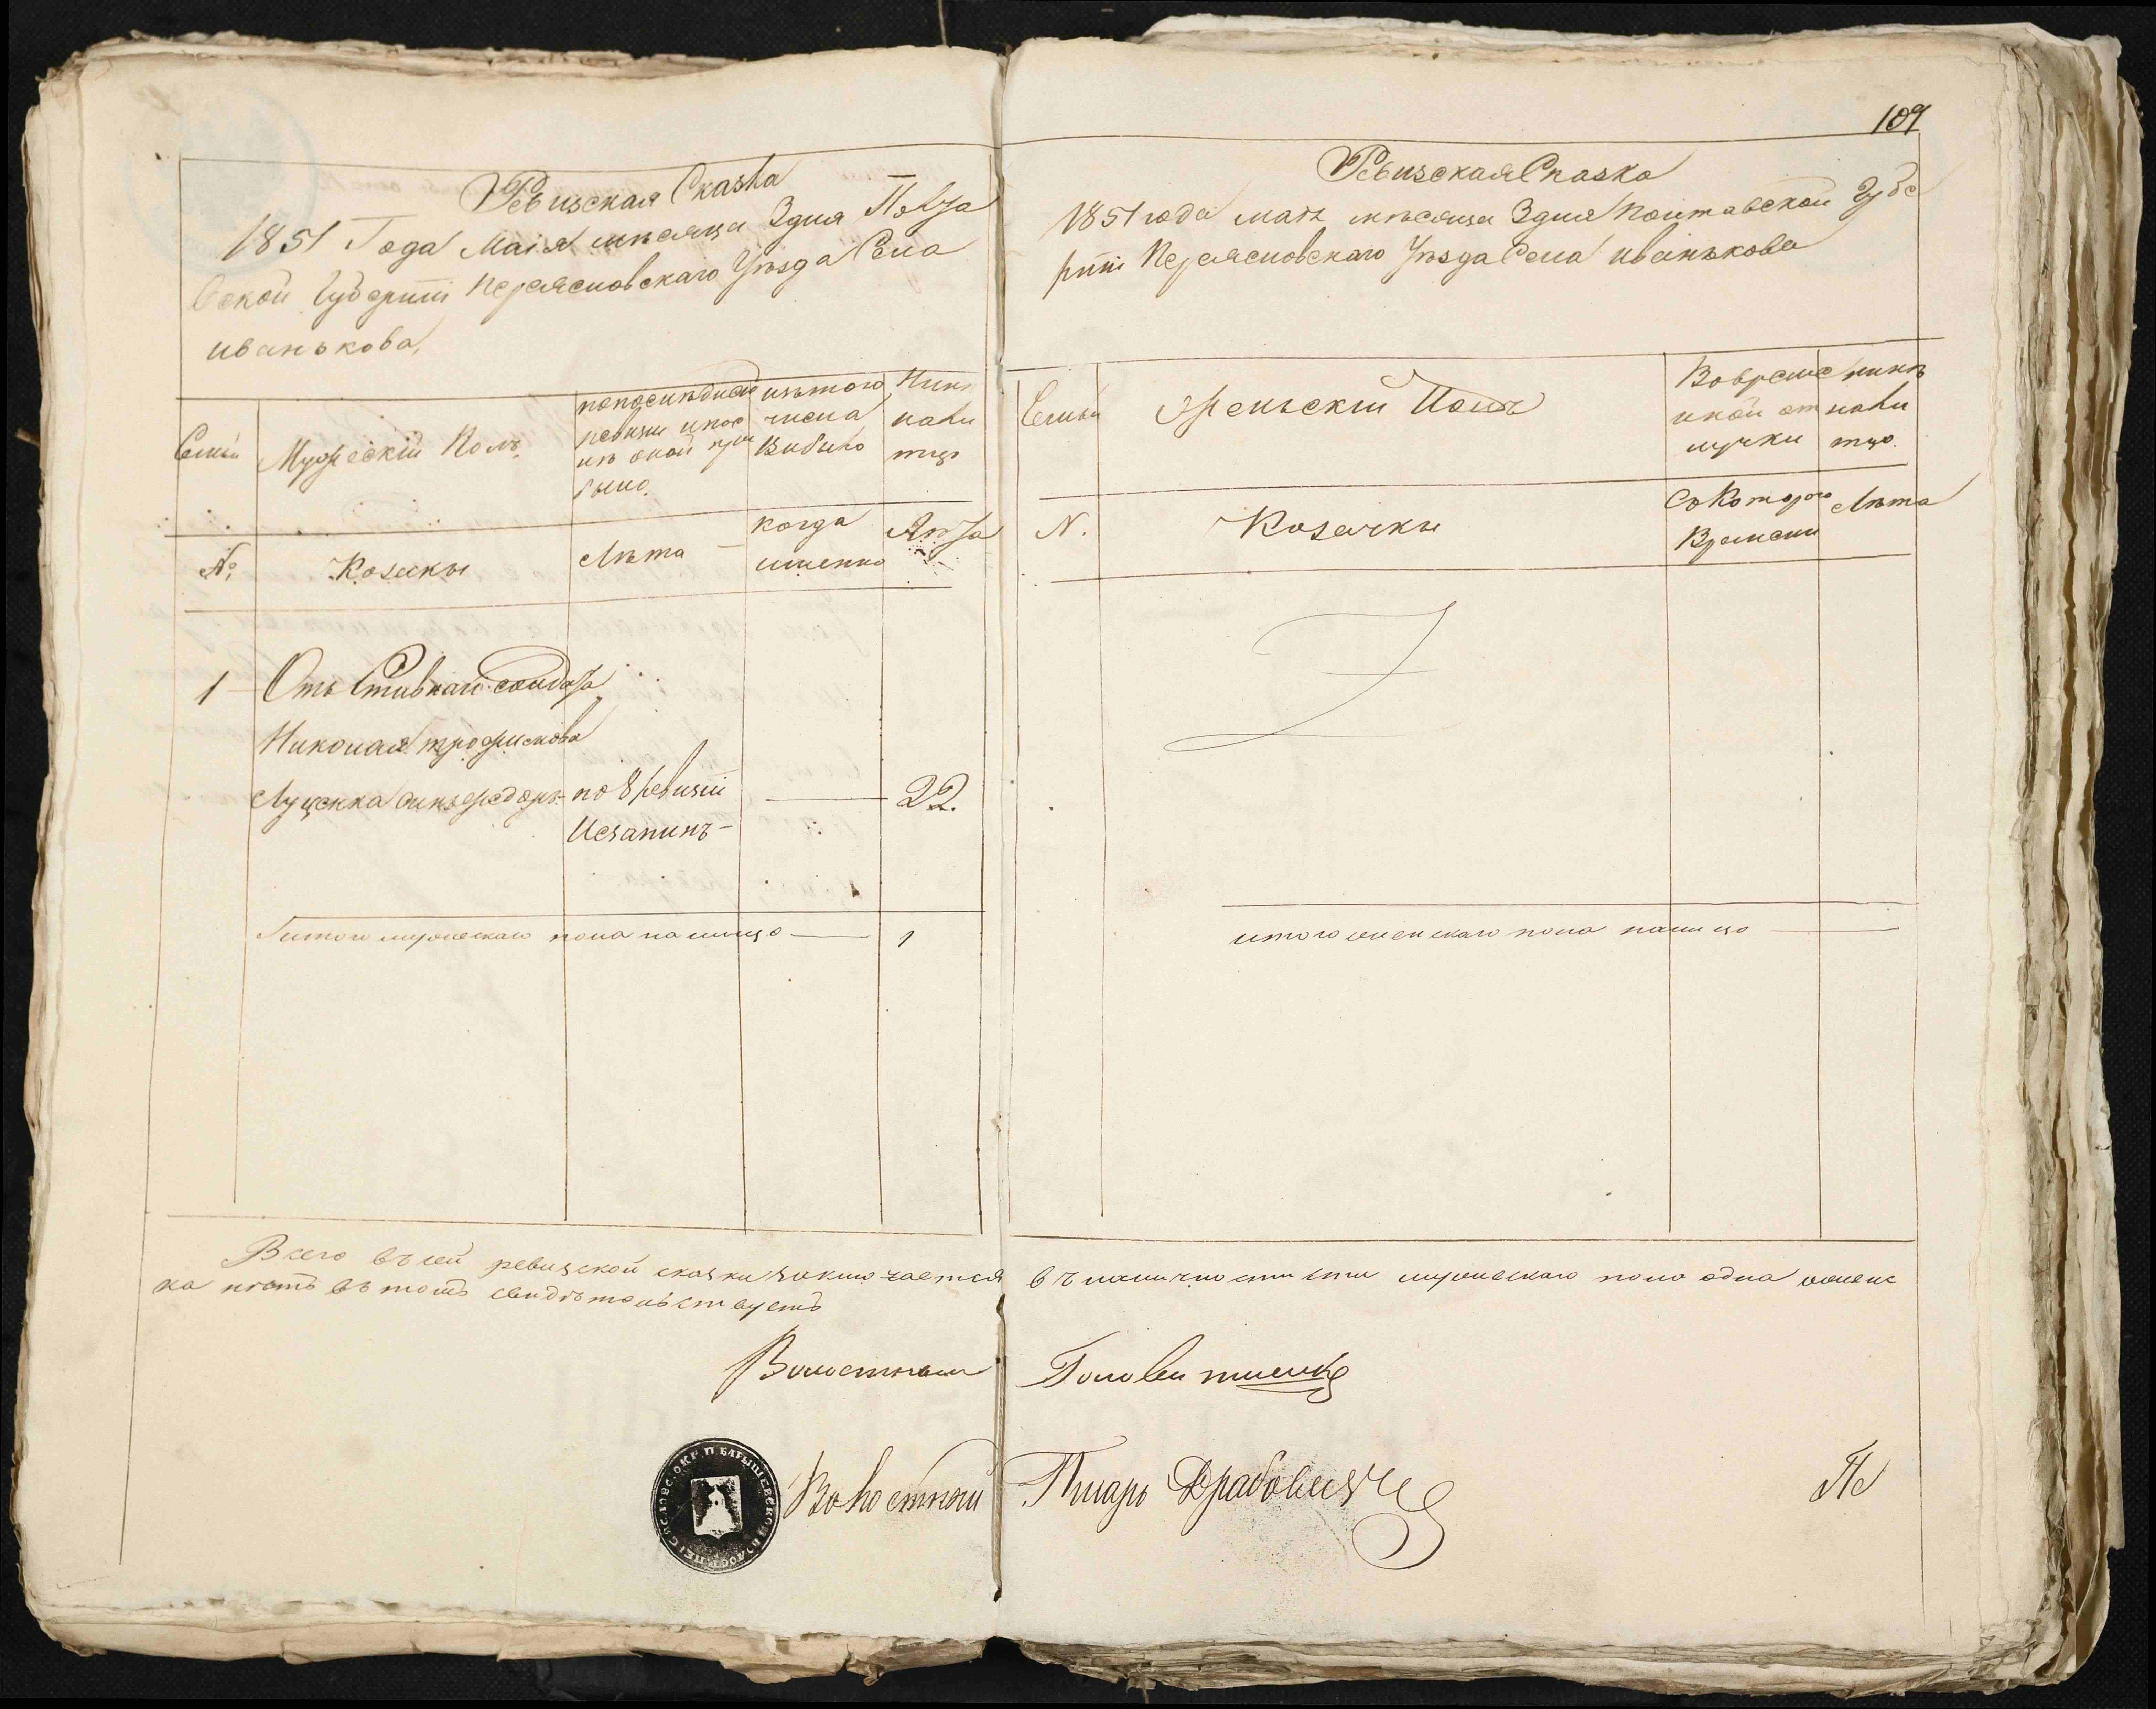 Ревизская Сказка
1851 Года Маія месяца 3 дня Полта
вской Губерніи Переясловскаго Уѣзда Села
иванькова,
Семьи
Мужескій Полъ,
попоследней
ревизіи и пос
лѣ оной при
было.
изътого
числа
Выбыло
Нинѣ
нали
тцо
№
Козаки
Лѣта
когда
именно
Лѣта
1 Отъ Ставной солдата
Николая трофимова
Луценка синъ федоръ по 8 ревизіи 22.
Незапинъ
итого мужескаго пола налицо 1
109
Ревизская Сказка
1851 года маія мѣсяца 3 дня Полтавской Губе
рніи Переясловскаго Уѣзда Села иванькова
Семьи
Женьскій Полъ
Вовреме
нной от
лучки
нинѣ
нали
тцо.
N.
Козачки
Съ Котораго
Времени
Лѣта
итого женскаго пола налицо
Всего въ сей ревизской сказки заключается въ наличности мужескаго пола одна женс
ка нѣтъ въ томъ свидѣтельствуетъ
Волостной Голова
Волостной Писарь Драбовичъ
Пе